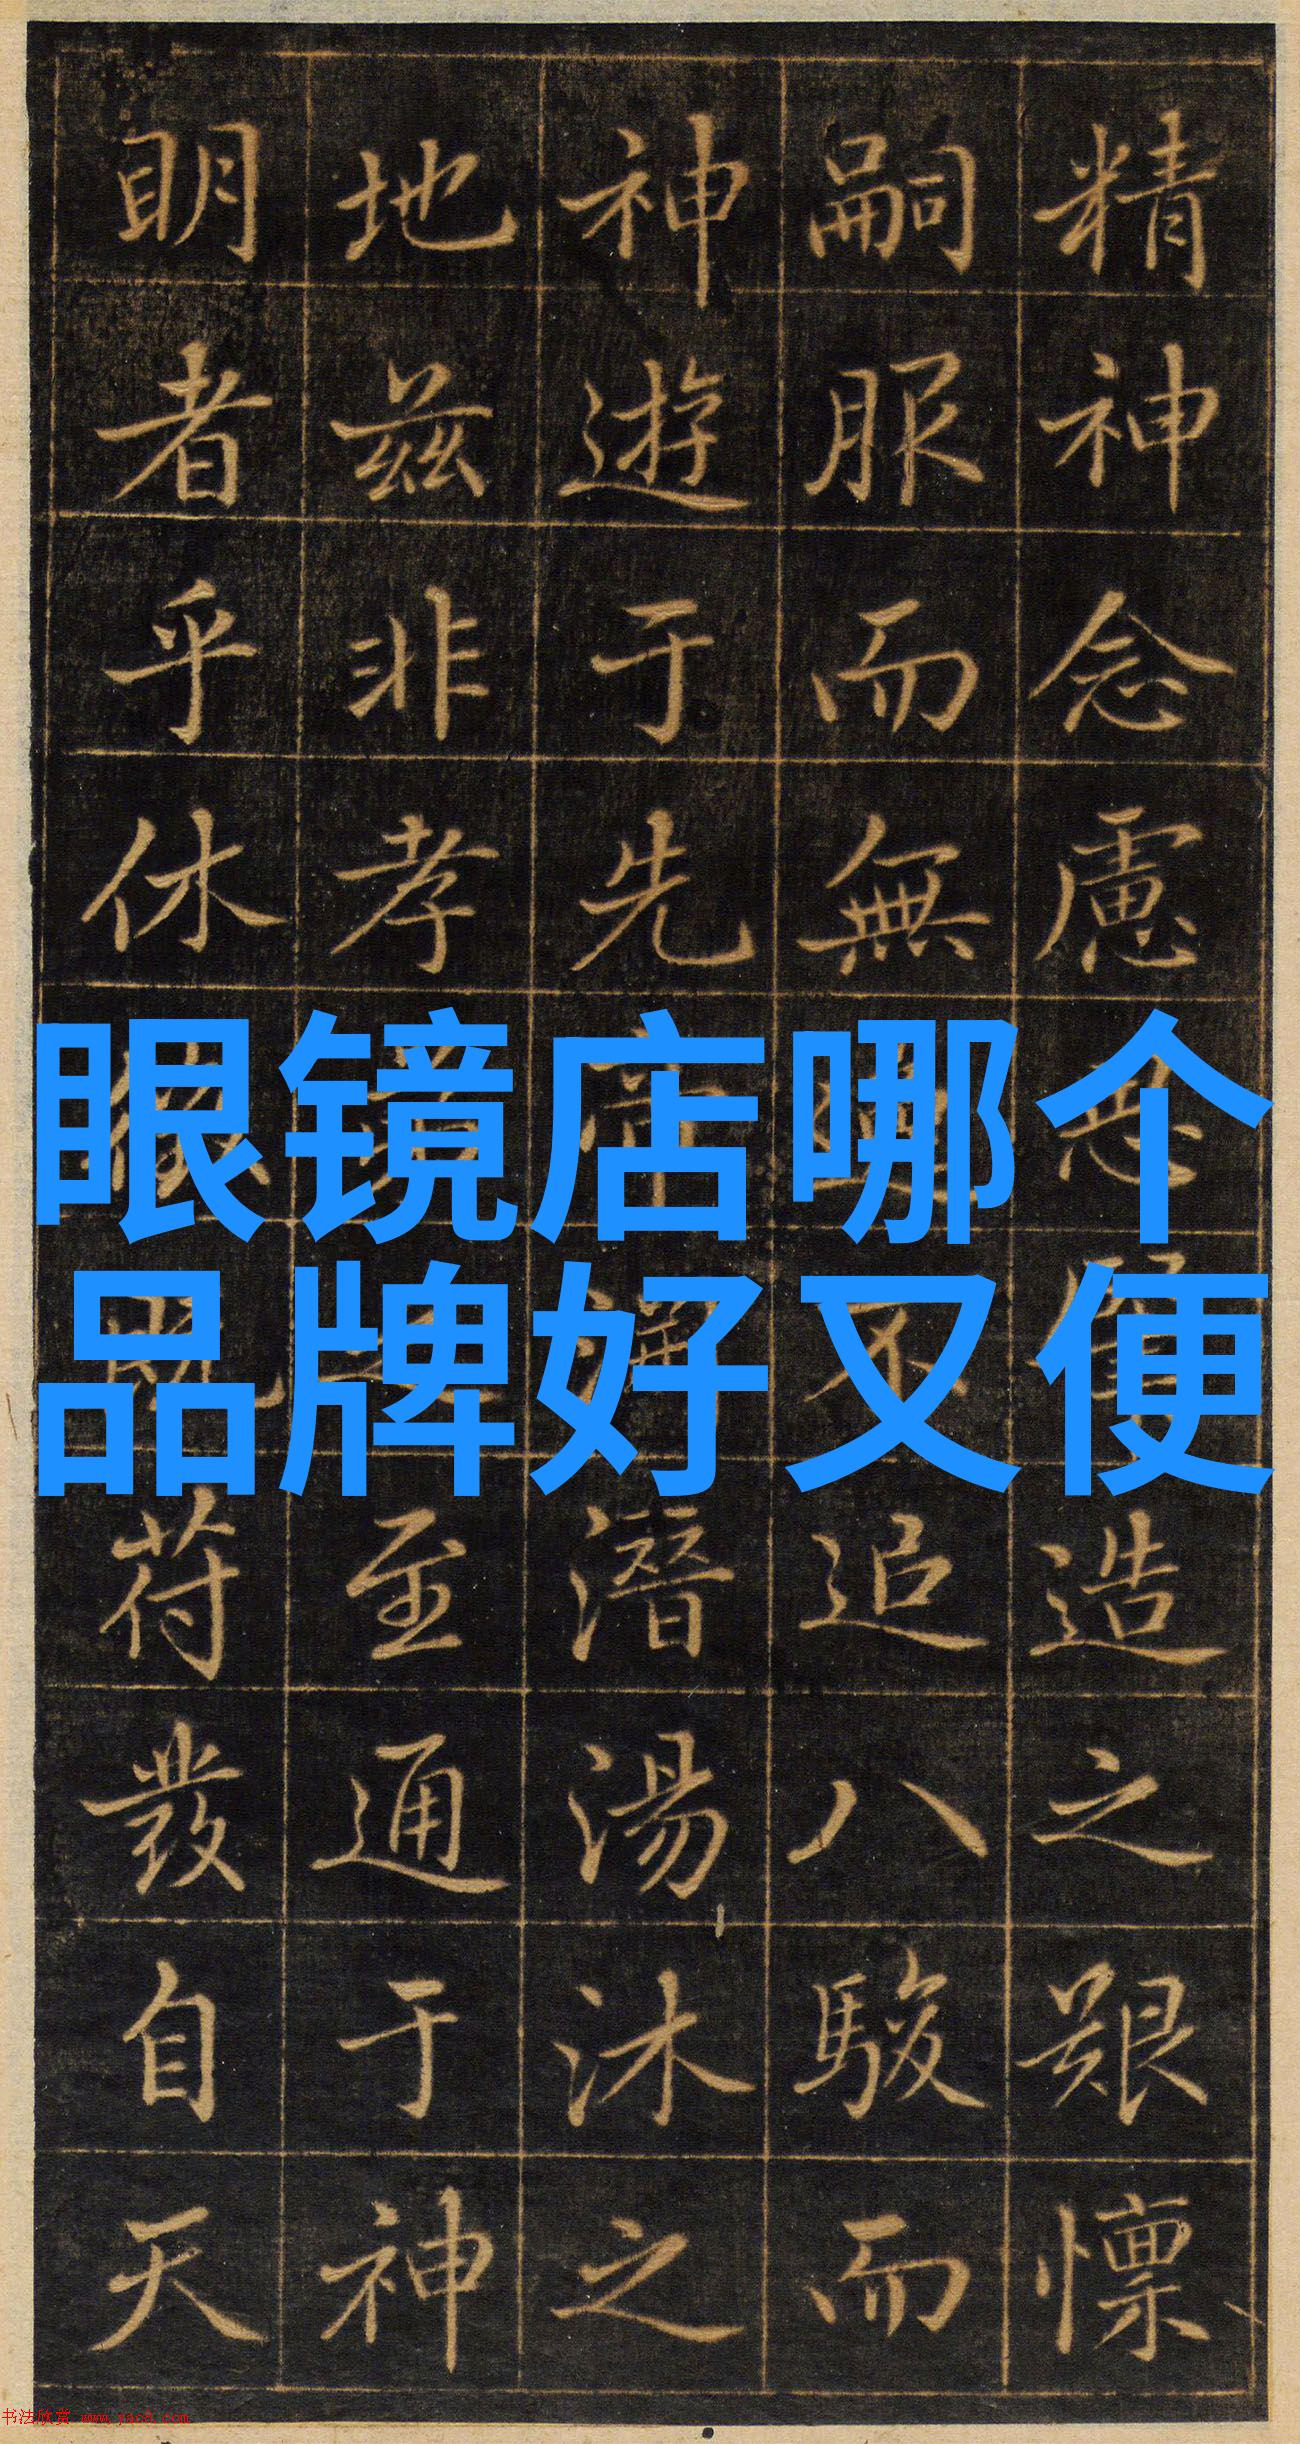 精神念慮造之艱懍
嗣服而無不追八駿而
神遊于先潛湯沐之
地兹非孝至通于神
眀者乎休苻發自天
眼镜店哪个
品牌好又便
书法欣赏 www.yac8.com